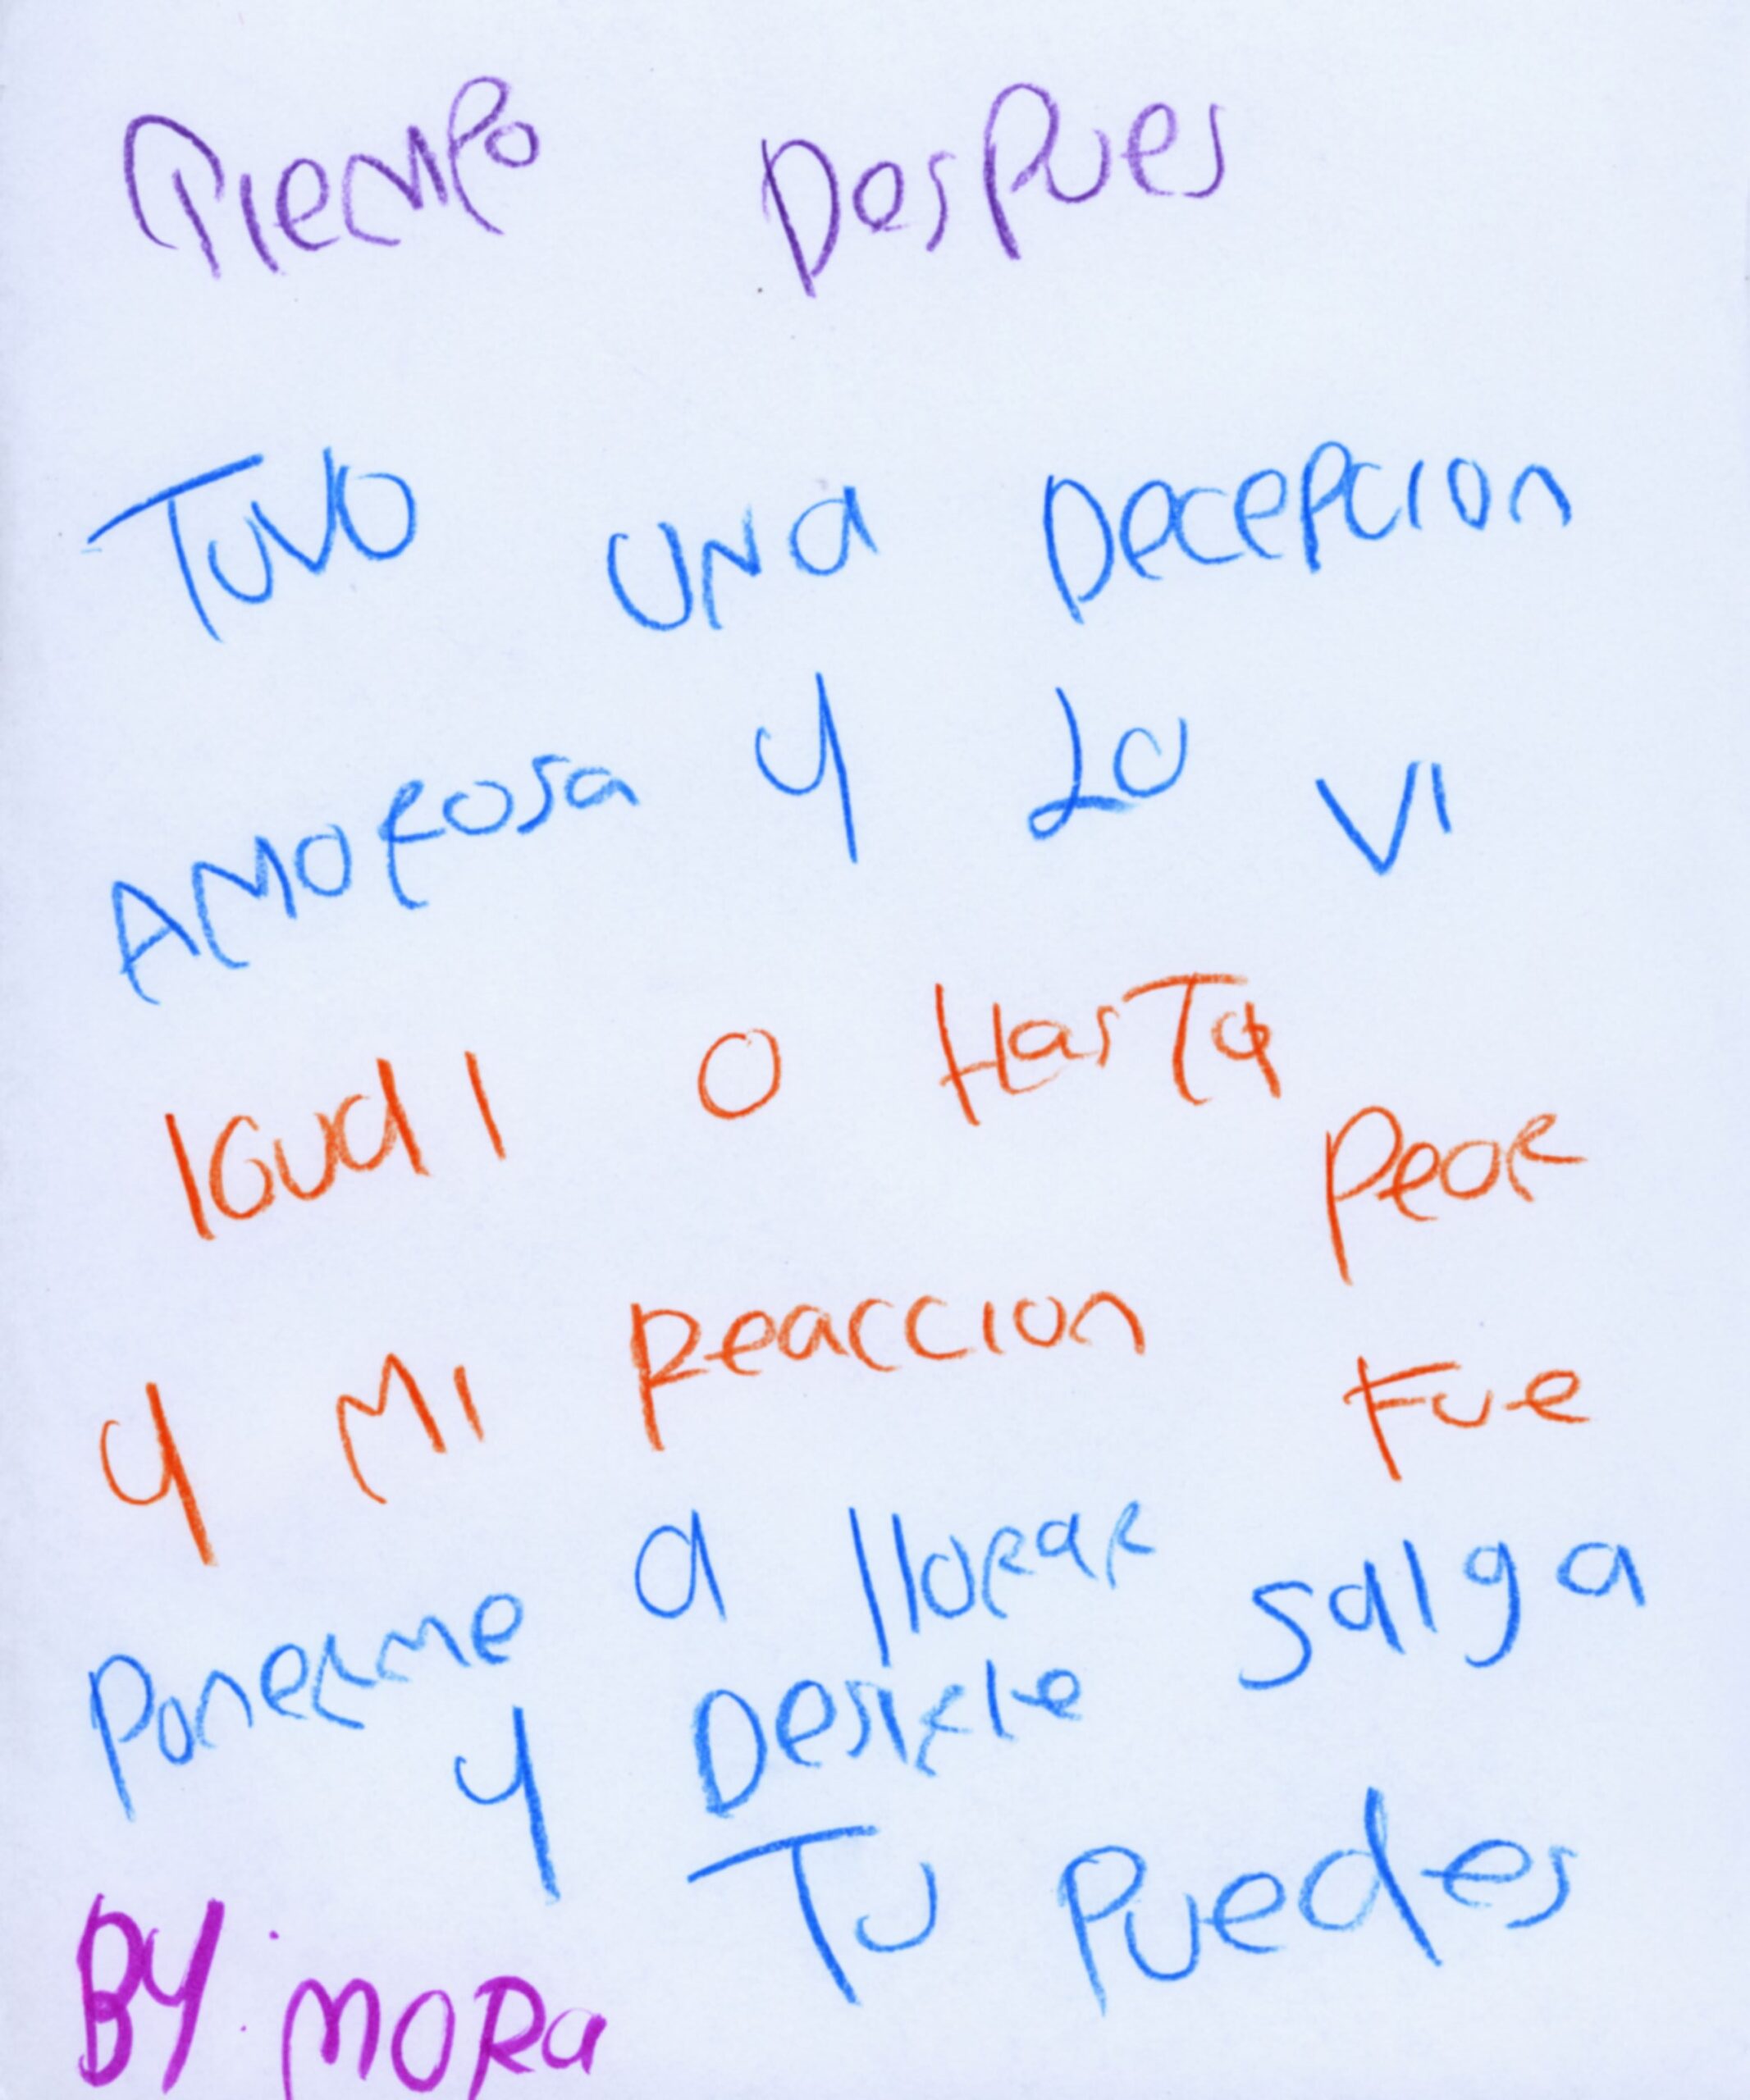 Tiempo Despues
Tuvo una Decepcion
Amorosa y Lo vi
Igual o Hasta Peor
y mi Reaccion Fue
Ponerme a llorar salga
y Desirle
Tu Puedes
By: MORa